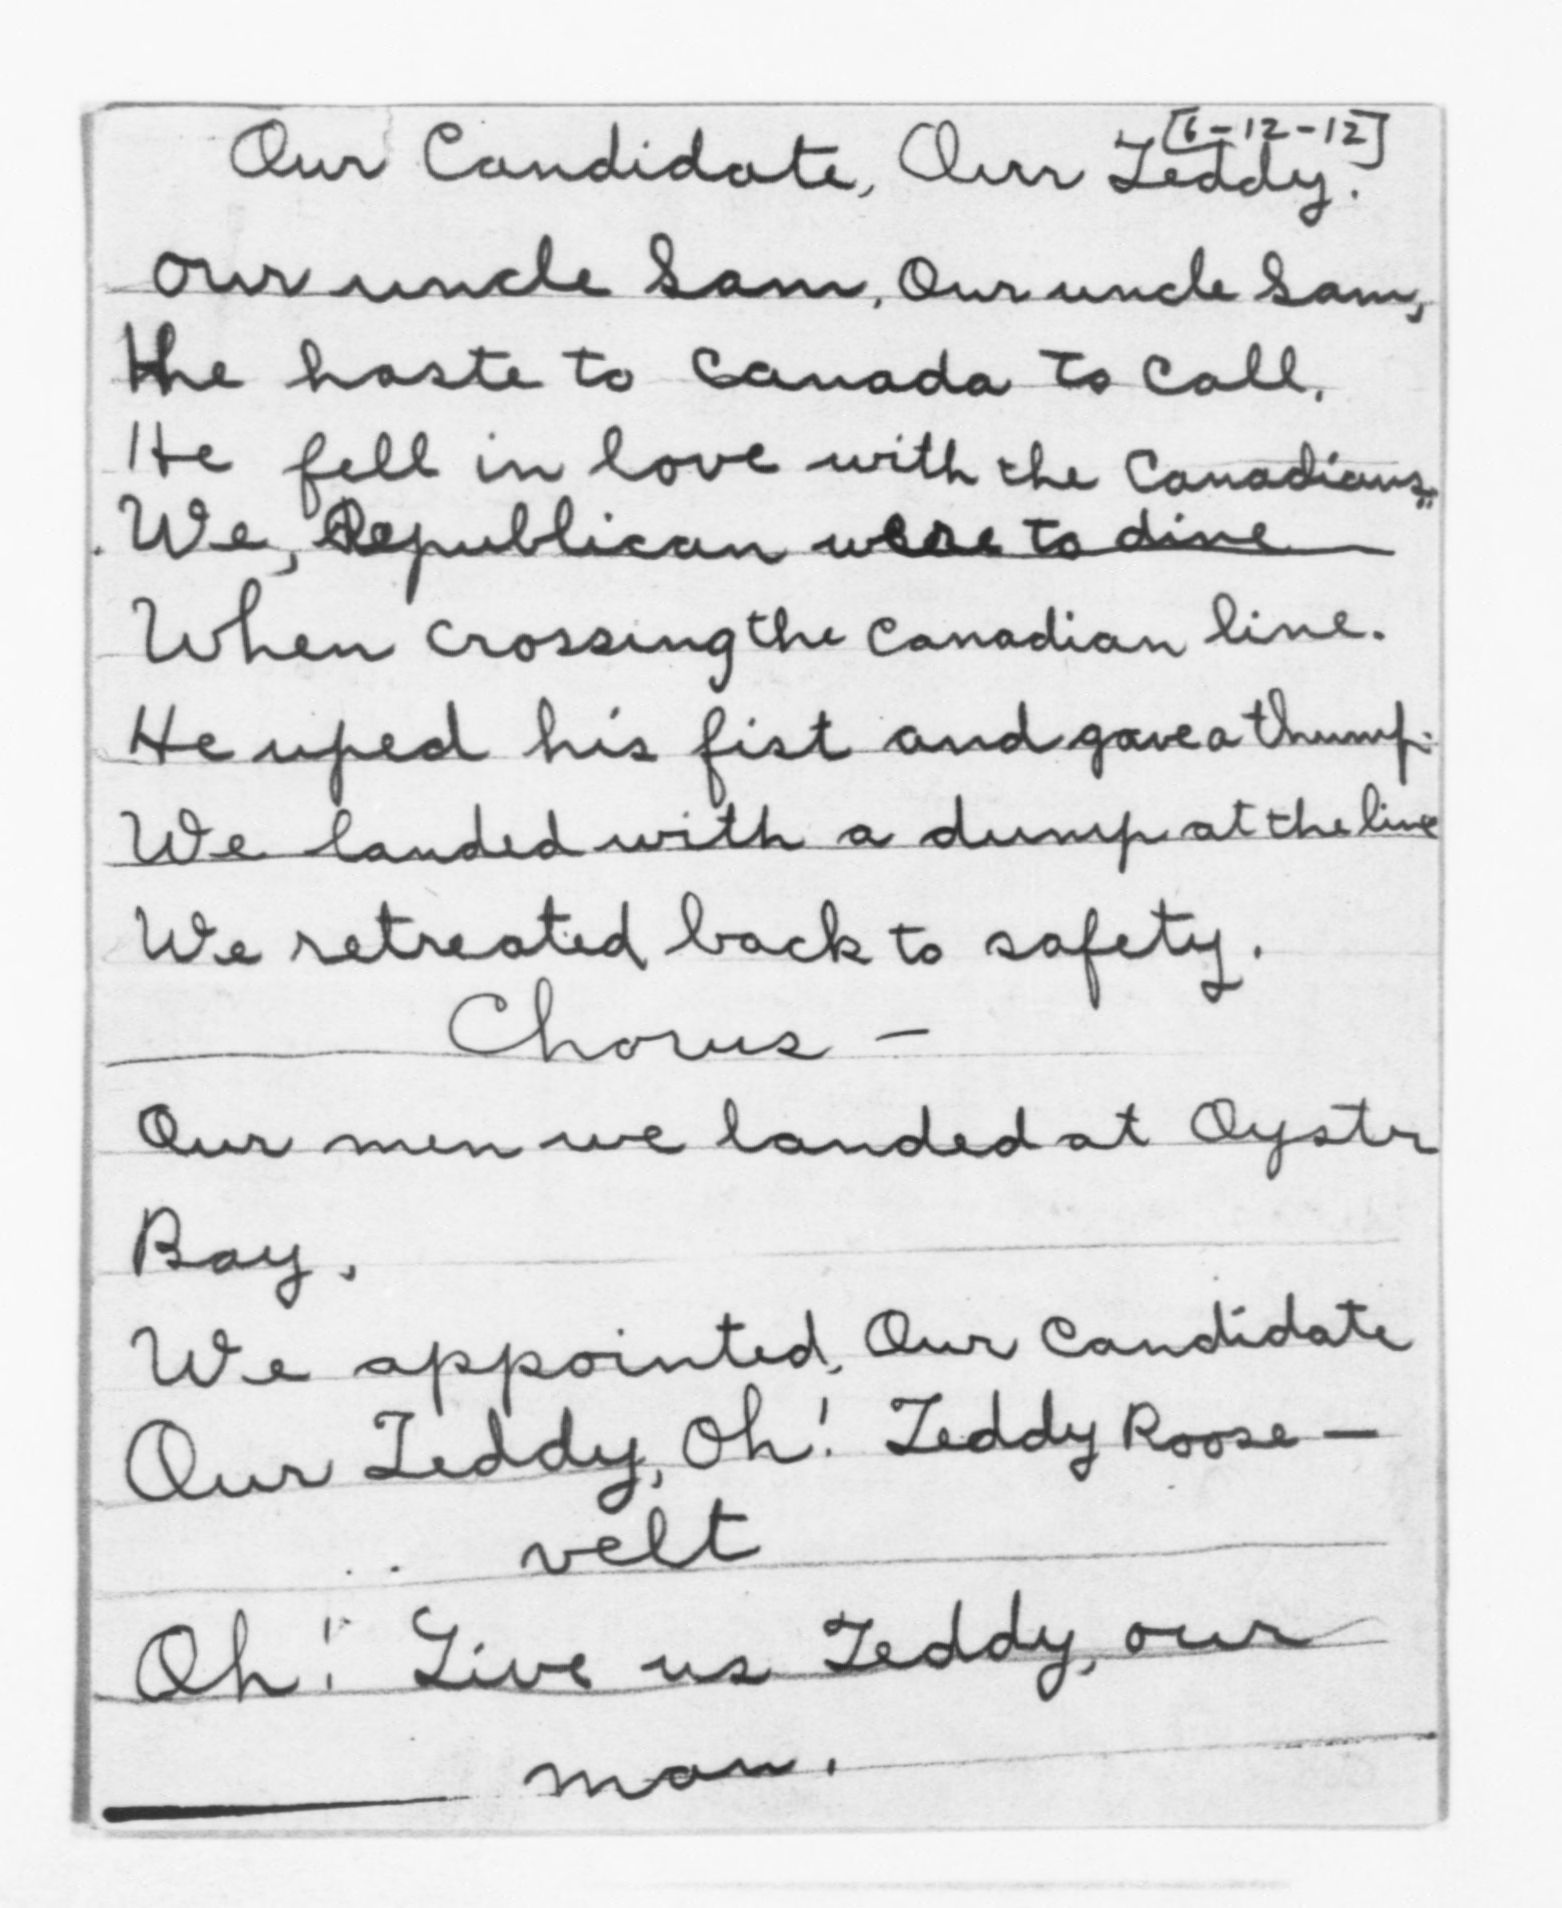 [6-12-12]
Our Candidate, Our Teddy.
Our uncle Sam, Our uncle Sam,
the haste to Canada to Call.
He fell in love with the Canadians.
We, Republican were to dine
When crossing the Canadian line.
He uped his fist and gave a thump.
We landed with a dump at the line
We retreated back to safety.
Chorus –
Our men we landed at Oystr
Bay,
We appointed, Our Candidate
Our Teddy, Oh! Teddy Roose –
velt
Oh! Give us Teddy, our
man.